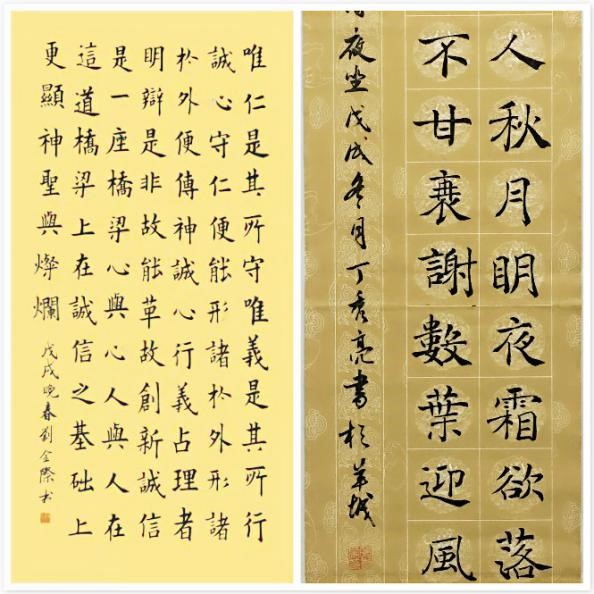 唯仁是其所守唯義是其所行
誠心守仁便能形諸於外形諸
於外便傳神誠心行義占理者
明辯是非故能革故創新誠信
是一座橋梁心與心人與人在
這道橋梁上在誠信之基础上
更顯神聖與燦爛
戊戌晚春劉金際书
人秋月明夜霜欲落
不甘衰謝數葉迎風
夜坐戊戌冬月丁秀亮書於羊城